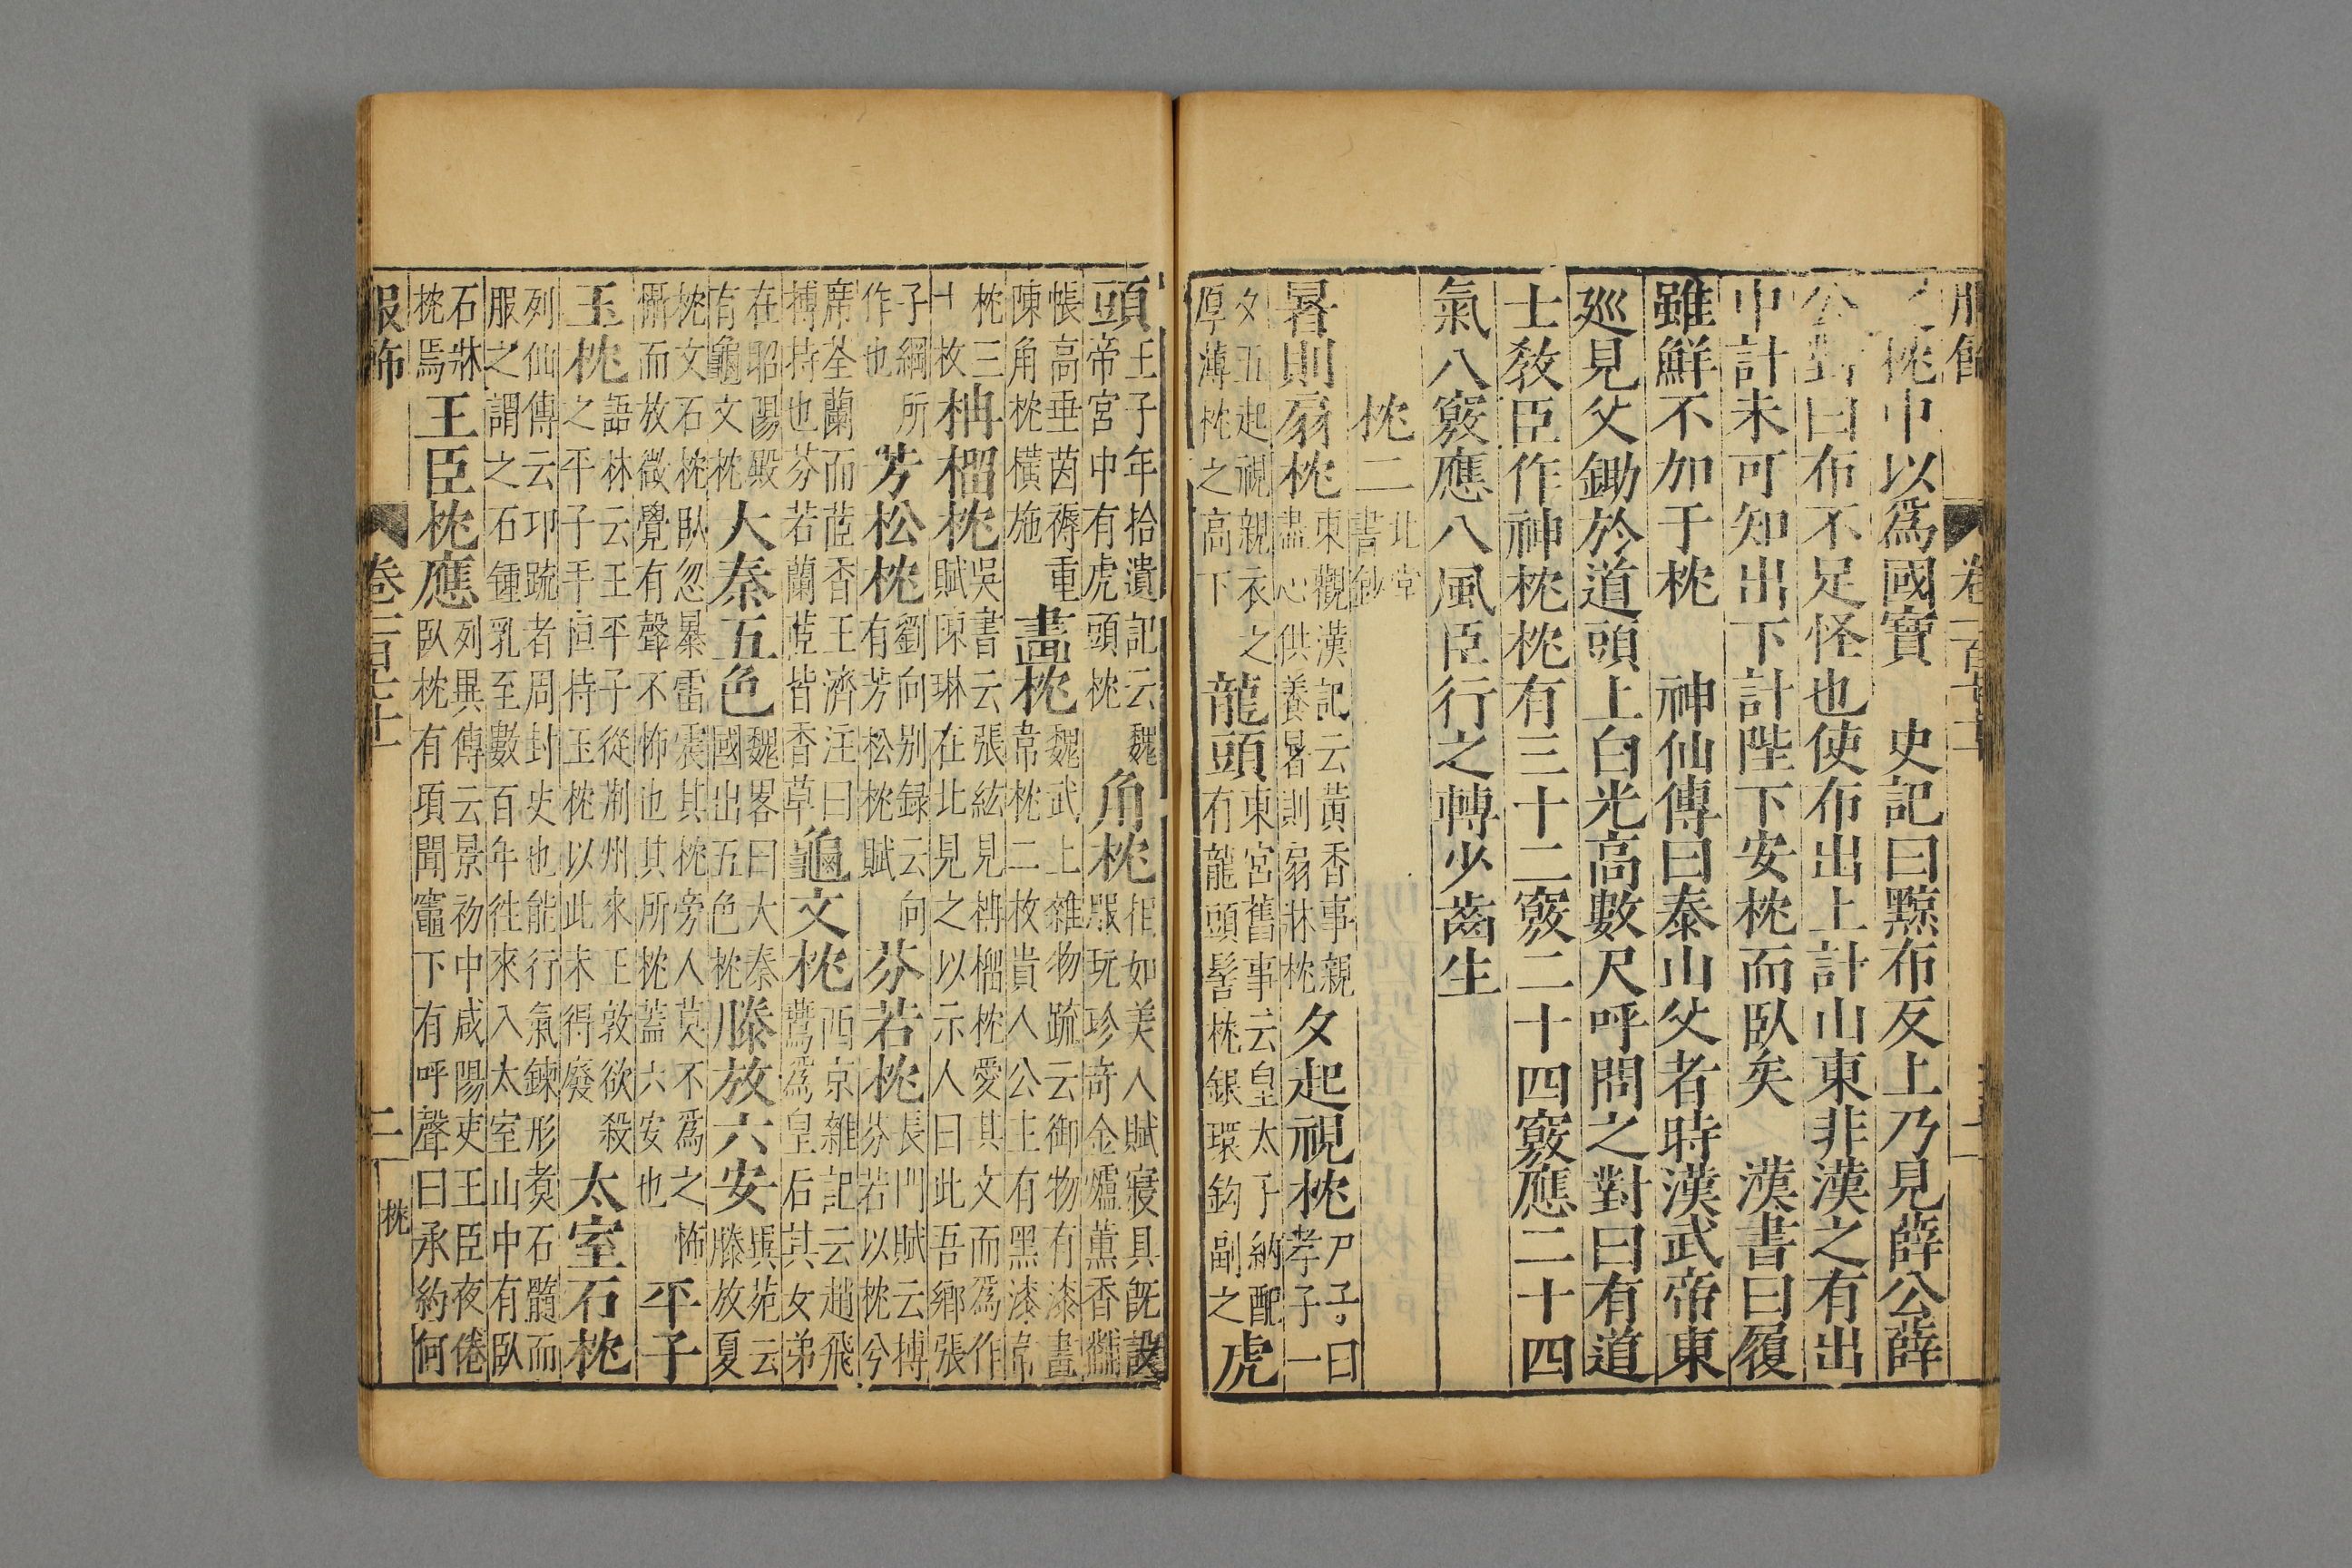 之枕中以爲國寶　史記曰黥布反上乃見薛公薛
公對曰布不足怪也使布出上計山東非漢之有出
中計未可知出下計陛下安枕而臥矣　漢書曰履
雖鮮不加于枕　神仙傳曰泰山父者時漢武帝東
廵見父鋤於道頭上白光高數尺呼問之對曰有道
士敎臣作神枕枕有三十二竅二十四竅應二十四
氣八竅應八風臣行之轉少齒生
枕二　北堂書鈔
暑則扇枕　東觀漢記云黄香事親盡心供養暑則扇牀枕　夕起視枕　尸子曰孝子一
夕五起視親衣之厚薄枕之高下　龍頭　東宮舊事云皇太子納配有龍頭髻枕銀環鈎副之　虎
頭　王子年拾遺記云魏帝宮中有虎頭枕　角枕　相如美人賦寢具旣設服玩珍奇金爐薰香黼
帳高垂茵褥重陳角枕橫施　畫枕　魏武上雜物疏云御物有漆畫韋枕二枚貴人公主有黑漆韋
枕三十枚　柟榴枕　吳書云張紘見柟榴枕愛其文而爲作賦陳琳在北見之以示人曰此吾鄉張
子綱所作也　芳松枕　劉向别録云向有芳松枕賦　芬若枕　長門賦云摶芬若以枕兮
席荃蘭而茝香王濟注曰摶持也芬若蘭茝皆香草　龜文枕　西京雜記云趙飛鷰爲皇后其女弟
在昭陽殿有龜文枕　大秦五色　魏畧曰大秦國出五色枕　滕放六安　異苑云滕放夏
枕文石枕臥忽暴雷震其枕旁人莫不爲之怖懾而放微覺有聲不怖也其所枕蓋六安也　平子
玉枕　語林云王平子從荆州來王敦欲殺之平子干恒持玉枕以此未得發　太室石枕
列仙傳云卭䟽者周封史也能行氣鍊形煑石髓而服之謂之石鍾乳至數百年往來入太室山中有臥
石牀枕焉　王臣枕應　列異傳云景初中咸陽吏王臣夜倦臥枕有頃聞竈下有呼聲曰承約何
服飾　二　枕